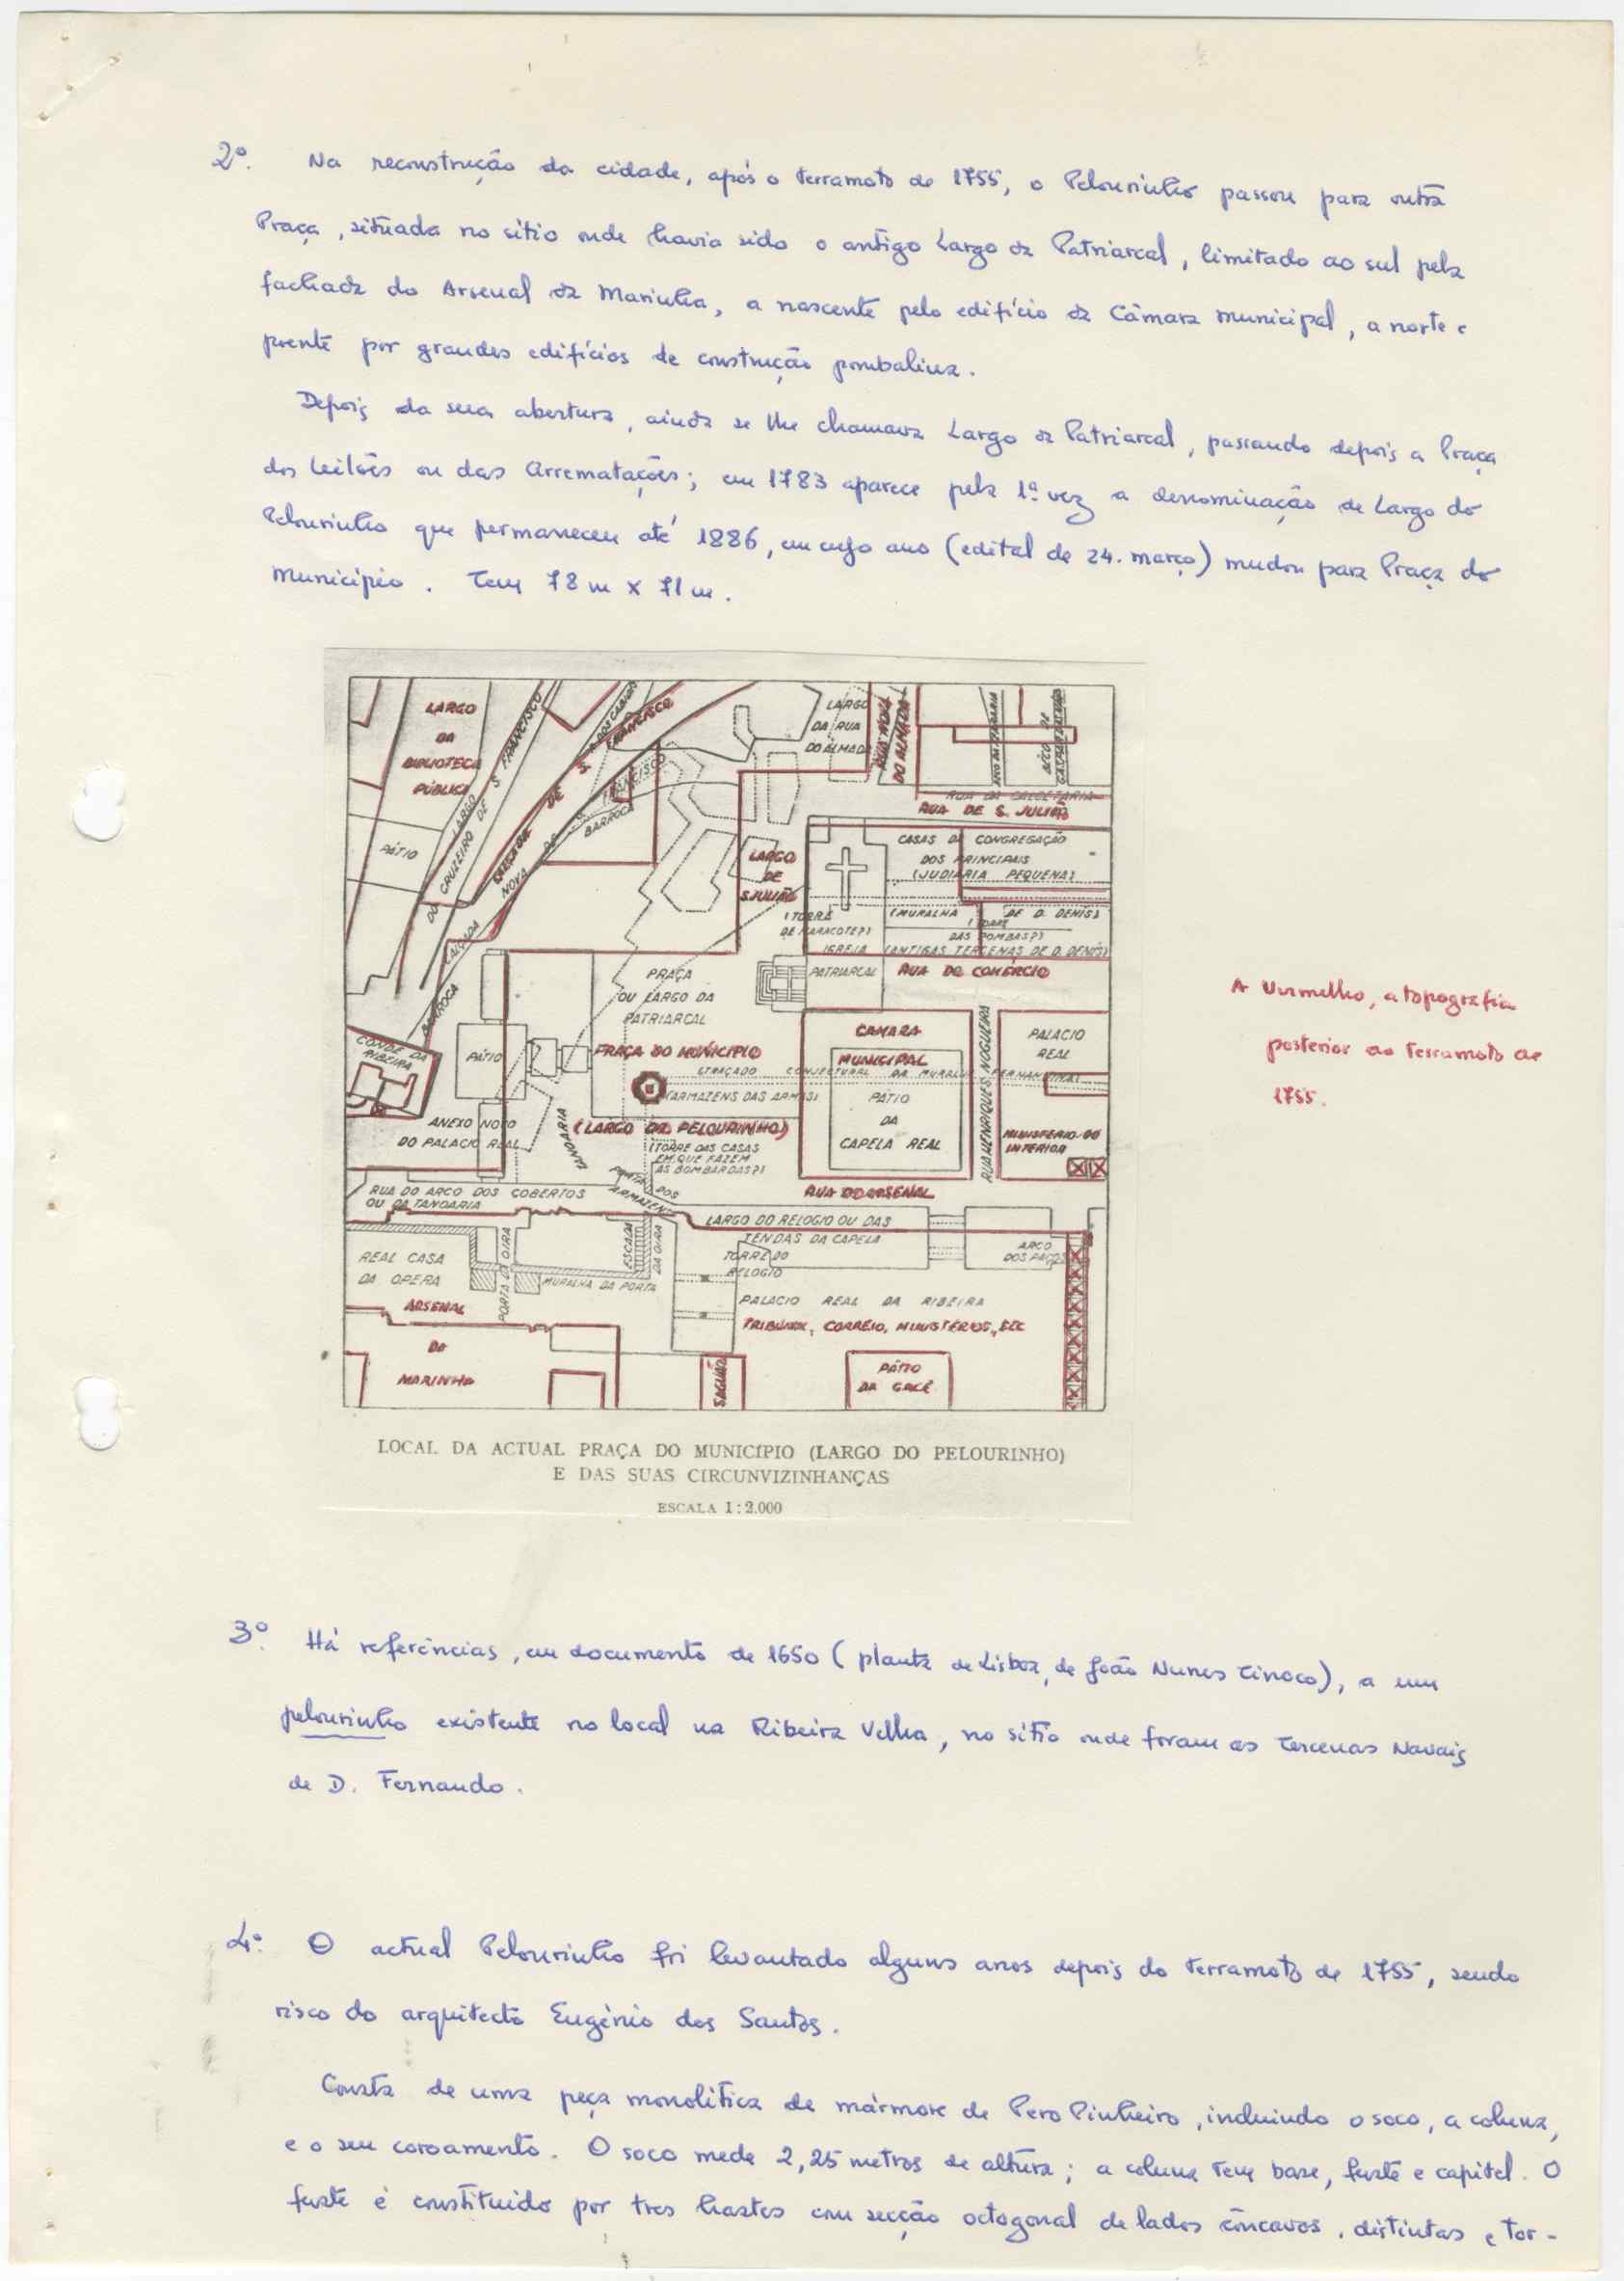 2º. Na reconstrução da cidade, após o terramoto de 1755, o Pelourinho passou para outra
Praça, situada no sítio onde havia sido o antigo Largo da Patriarcal, limitado ao sul pela
fachada do Arsenal da Marinha, a nascente pelo edifício da Câmara Municipal, a norte e
poente por grandes edifícios de construção pombalina.
Depois da sua abertura, ainda se lhe chamava Largo da Patriarcal, passando depois a Praça
dos Leilões ou das Arrematações; em 1783 aparece pela 1ª vez a denominação de Largo do
Pelourinho que permaneceu até 1886, em cujo ano (edital de 24. março) mudou para Praça do
Município. Tem 78 m x 71 m.
LARGO
DA
BIBLIOTECA
PÚBLICA
PÁTIO
LARGO
DO CRUZEIRO DE S. FRANCISCO
CALÇADA DE S. FRANCISCO
CALÇADA NOVA DE S. FRANCISCO
BARROCA
BARROCA
LARGO
DA RUA
DO ALMADA
RUA NOVA
DO ALMADA
RUA DA CALCETARIA
RUA DE S. JULIÃO
CASAS DA CONGREGAÇÃO
DOS PRINCIPAIS
(JUDIARIA PEQUENA)
LARGO
DE
S. JULIÃO
(TORRE
DE MARACOTE?)
(MURALHA DE D. DENIS)
(TORRE
DAS POMBAS?)
IGREJA (ANTIGAS TERCENAS DE D. DENIS)
PATRIARCAL
RUA DO COMÉRCIO
PRAÇA
OU LARGO DA
PATRIARCAL
CONDE DA
RIBEIRA
PÁTIO
PRAÇA DO MUNICIPIO
CAMARA
MUNICIPAL
PALACIO
REAL
(TRAÇADO CONJECTURAL DA MURALHA FERNANDINA)
(ARMAZENS DAS ARMAS)
PÁTIO
DA
CAPELA REAL
RUA HENRIQUES NOGUEIRA
ANEXO NOVO
DO PALACIO REAL
TANOARIA
(LARGO DO PELOURINHO)
(TORRE DAS CASAS
EM QUE FAZEM
AS BOMBARDAS?)
MINISTÉRIO DO
INTERIOR
RUA DO ARCO DOS COBERTOS
OU DA TANOARIA
PORTA DOS
ARMAZENS
RUA DO ARSENAL
LARGO DO RELOGIO OU DAS
TENDAS DA CAPELA
ARCO
DOS PAÇOS
REAL CASA
DA OPERA
PORTA DA OIRA
ESCADA
DA OIRA
MURALHA DA PORTA
TORRE DO
RELOGIO
PALACIO REAL DA RIBEIRA
ARSENAL
DA
MARINHA
TRIBUNAL, CORREIO, MINISTÉRIOS, ETC
SAGUÃO
PÁTIO
DA GALÉ
A vermelho, a topografia
posterior ao terramoto de
1755.
LOCAL DA ACTUAL PRAÇA DO MUNICÍPIO (LARGO DO PELOURINHO)
E DAS SUAS CIRCUNVIZINHANÇAS
ESCALA 1:2.000
3º. Há referências, em documento de 1650 (planta de Lisboa, de João Nunes Tinoco), a um
pelourinho existente no local na Ribeira Velha, no sítio onde foram as Tercenas Navais
de D. Fernando.
4º. O actual Pelourinho foi levantado alguns anos depois do terramoto de 1755, sendo
risco do arquitecto Eugénio dos Santos.
Consta de uma peça monolítica de mármore de Pero Pinheiro, incluindo o soco, a coluna,
e o seu coroamento. O soco mede 2,25 metros de altura; a coluna tem base, fuste e capitel. O
fuste é constituido por tres hastes com secção octogonal de lados côncavos, distintas e tor-